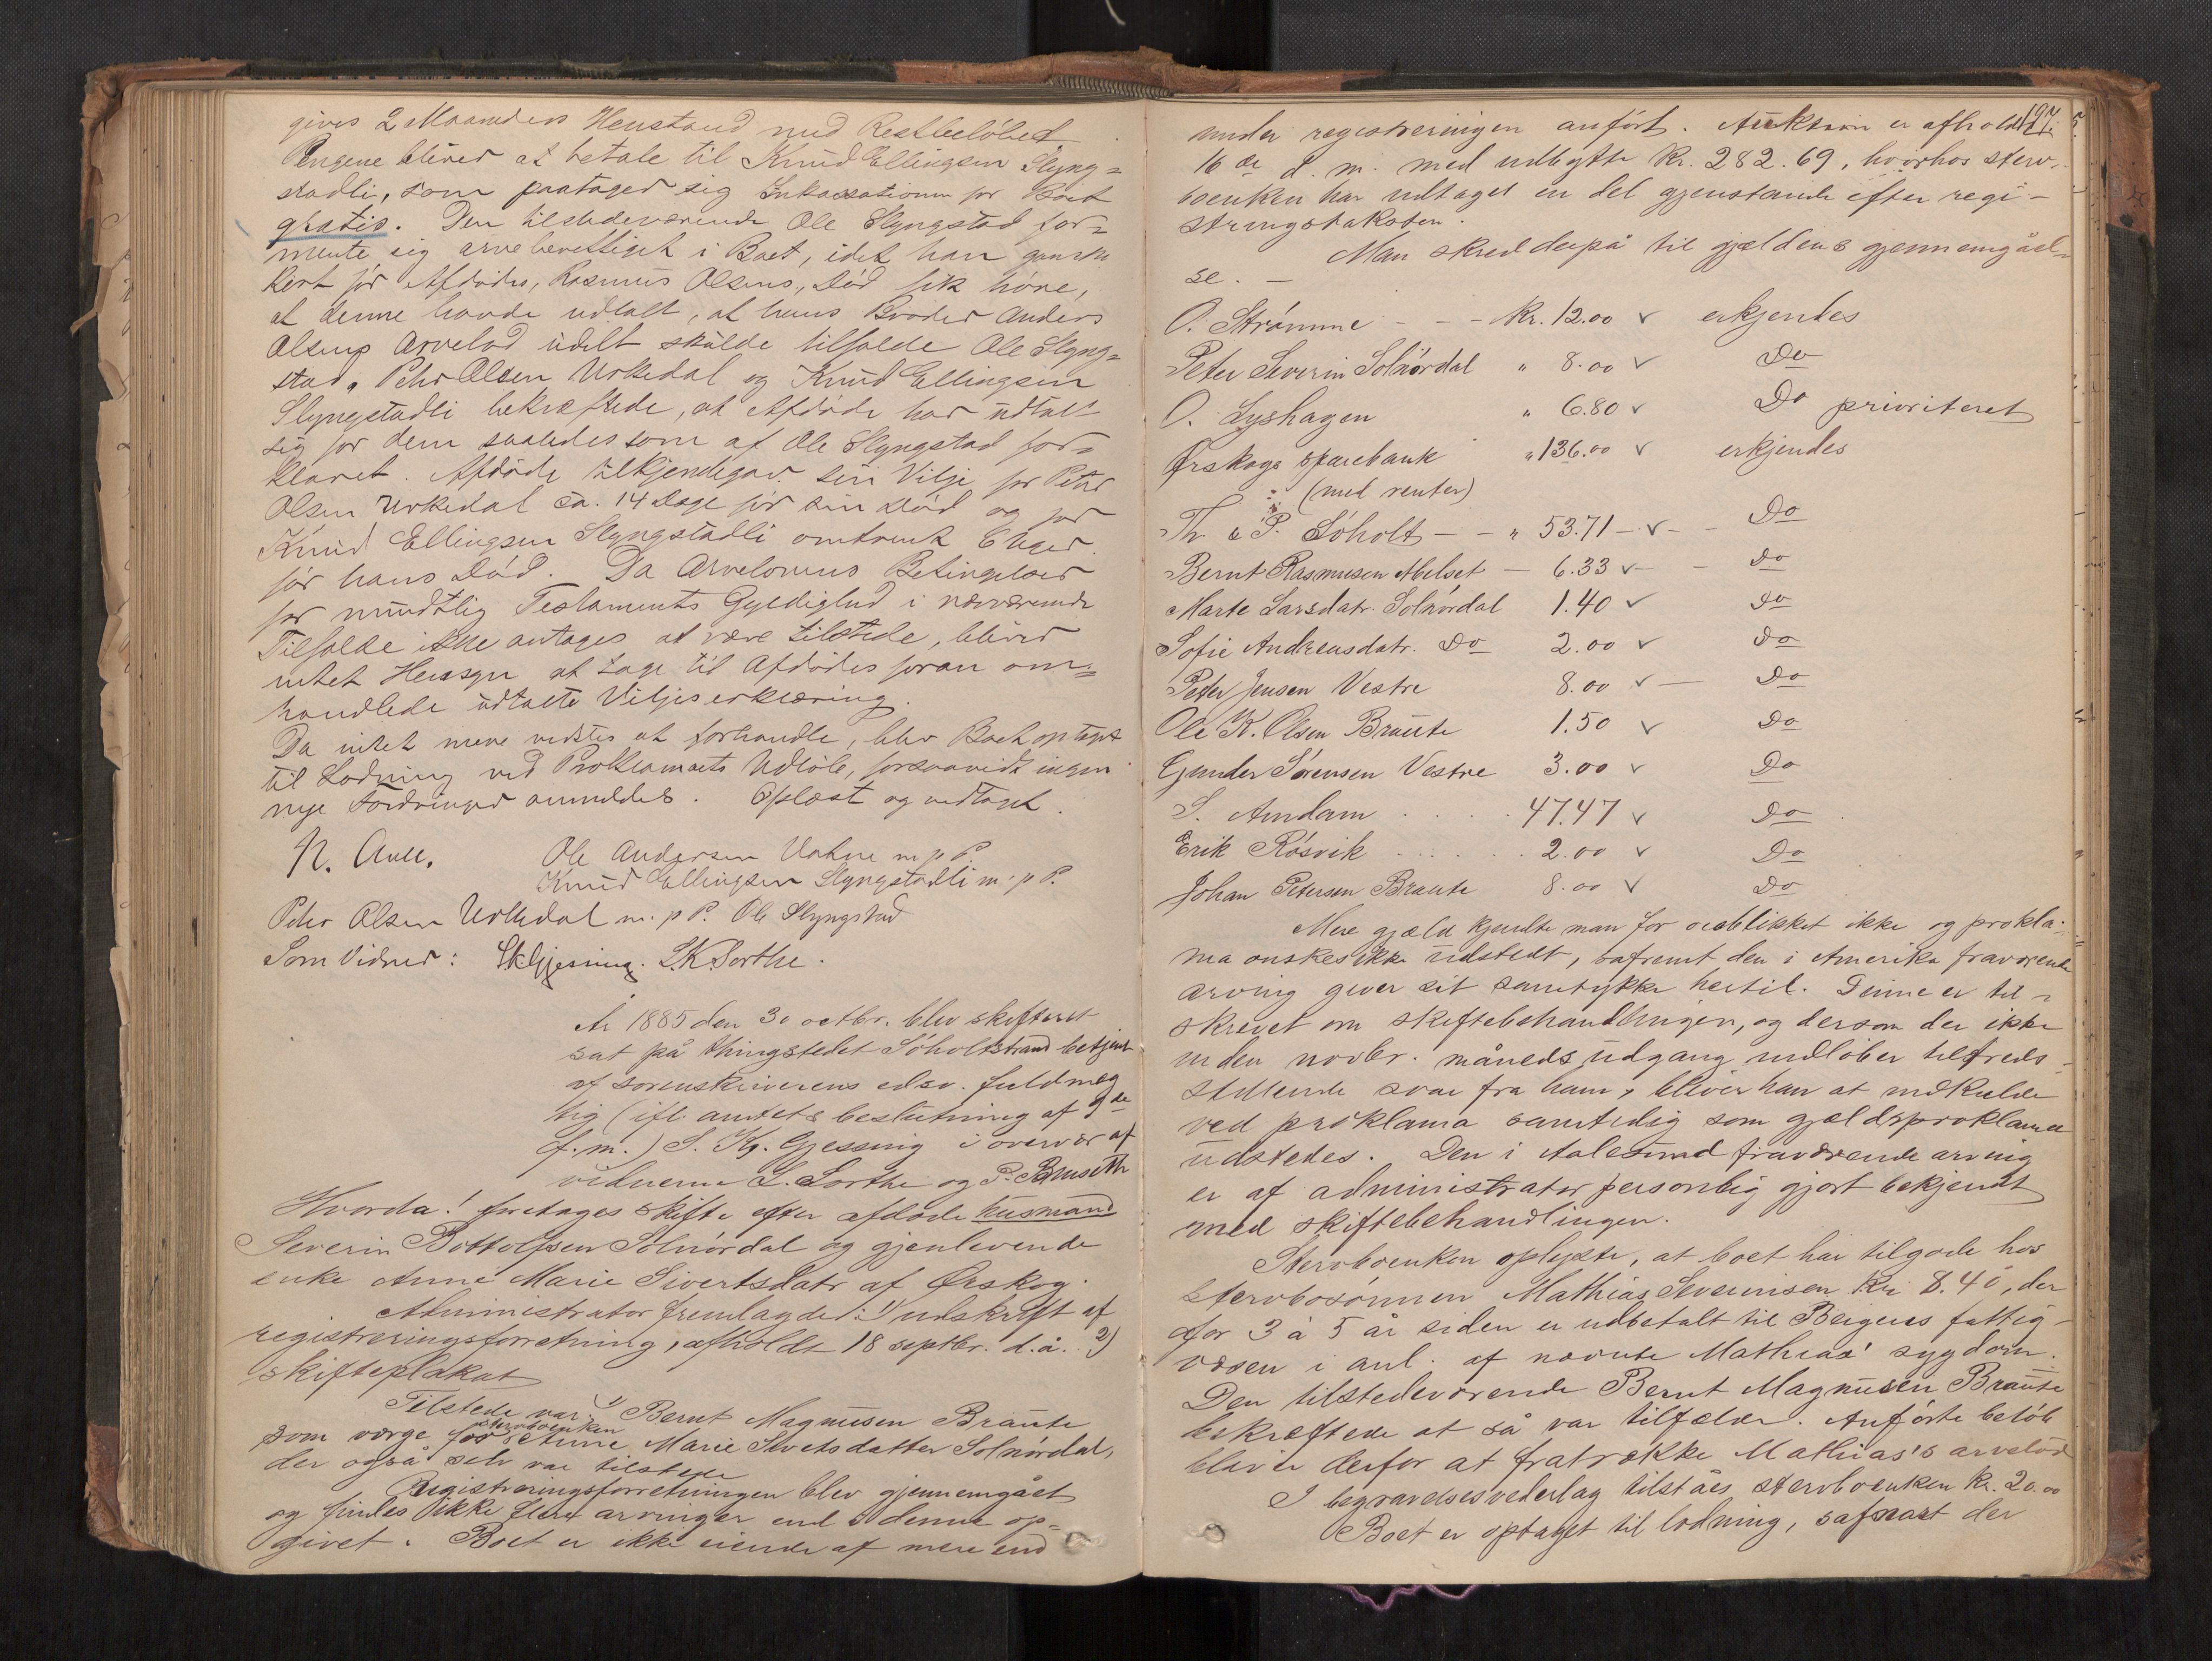 gives 2 Maaneders Henstand med Restbeløbet
Pengene bliver at betale til Knud Ellingsen Slyng=
stadli, som paatager sig Inkassationen for Boet
gratis. Den tilstedeværende Ole Slyngstad for=
mente sig arveberettiget i Boet, idet han ganske
kort før Afdødes, Rasmus Olsens, Død fik høre,
at denne havde udtalt, at hans Broder Anders
Olsens Arvelod udelt skulde tilfalde Ole Slyng=
stad. Peter Olsen Urkedal og Knud Ellingsen
Slyngstadli bekræftede, at Afdøde har udtalt
sig for dem saaledes som af Ole Slyngstad for=
klaret. Afdøde tilkjendegav sin Vilje for Peter
Olsen Urkedal ca. 14 Dage før sin Død og for
Knud Ellingsen Slyngstadli omtrent 6 Uger
før hans Død. Da Arvelovens Betingelser
for mundtlig Testaments Gyldighed i nærværende
Tilfælde ikke antages at være tilstede, bliver
intet Hensyn at tage til Afdødes foran om=
handlede udtalte Viljeserklæring.
Da intet mere vidstes at forhandle, blev Boet optaget
til Lodning ved Proklamaets Udløb, forsaavidt ingen
nye Fordringer anmeldes. Oplæst og vedtaget.
N. Aall. Ole Andersen Vahne m p P.
Knud Ellingsen Slyngstadli m. p P.
Peter Olsen Urkedal m. p P. Ole Slyngstad
Som Vidner: S.K. Gjessing. L.K. Sorthe.
År 1885 den 30 octbr. blev skifteret
sat på thingstedet Søholtstrand betjent
af sorenskriverens edsv. fuldmæg
tig (ifl. amtets beslutning af 9de
f.m.) S. Kg. Gjessing i overvær af
vidnerne L. Sorthe og P. Bruseth
Hvorda! foretoges skifte efter afdøde husmand
Severin Bottolfsen Solnørdal og gjenlevende
enke Anne Marie Sivertsdatr af Ørskog.
Administrator fremlagde: 1) udskrift af
registreringsforretning, afholdt 18 septbr. d.å. 2)
skifteplakat
Tilstede var: 1) Bernt Magnusen Braute
som værge for stervboenken Anne Marie Sivertsdatter Solnørdal,
der også selv var tilstede
Registreringsforretningen blev gjennemgået
og findes ikke flere arvinger end i denne op=
givet. Boet er ikke eiende af mere end
197.
under registreringen anført. Auktion er afholdt
16de d. m. med udbytte kr. 282.69, hvorhos sterv-
boenken har udtaget en del gjenstande efter regi-
streringstaksten.
Man skred derpå til gjældens gjennemgåel-
se. –
O. Strømme – – – Kr. 12.00 ✓ erkjendes
Peter Severin Solnørdal " 8.00 ✓ Do
O. Lyshagen " 6.80 ✓ Do prioriteret
Ørskogs sparebank " 136.00 ✓ erkjendes
(med renter)
Th. & P. Søholt – – " 53.71 – ✓ – Do
Bernt Rasmusen Abelset – 6.33 ✓ – – Do
Marte Larsdatr. Solnørdal 1.40 ✓ Do
Sofie Andreasdatr. Do 2.00 ✓ Do
Peter Jensen Vestre 8.00 ✓ – Do
Ole K. Olsen Braute 1.50 ✓ Do
Gunder Sørensen Vestre 3.00 ✓ Do
S. Amdam . . . . 47.47 ✓ Do
Erik Røsvik . . . . 2.00 ✓ Do
Johan Petersen Braute 8.00 ✓ Do
Mere gjæld kjendte man for øieblikket ikke og prokla-
ma ønskes ikke udstedt, såfremt den i Amerika fraværende
arving giver sit samtykke hertil. Denne er til-
skrevet om skiftebehandlingen, og dersom der ikke
inden novbr. måneds udgang indløber tilfreds-
stillende svar fra ham, bliver han at indkalde
ved proklama samtidig som gjældsproklama
udstedes. Den i Aalesund fraværende arving
er af administrator personlig gjort bekjendt
med skiftebehandlingen.
Stervboenken oplyste, at boet har tilgode hos
stervbosønnen Mathias Severinsen Kr. 8.40, der
for 3 à 5 år siden er udbetalt til Bergens fattig-
væsen i anl. af nævnte Mathias' sygdom.
Den tilstedeværende Bernt Magnusen Braute
bekræftede at så var tilfælde. Anførte beløb
bliver derfor at fratrække Mathias's arvelod
I begravelsesvederlag tilståes stervboenken kr. 20.00
Boet er optaget til lodning, såsnart der